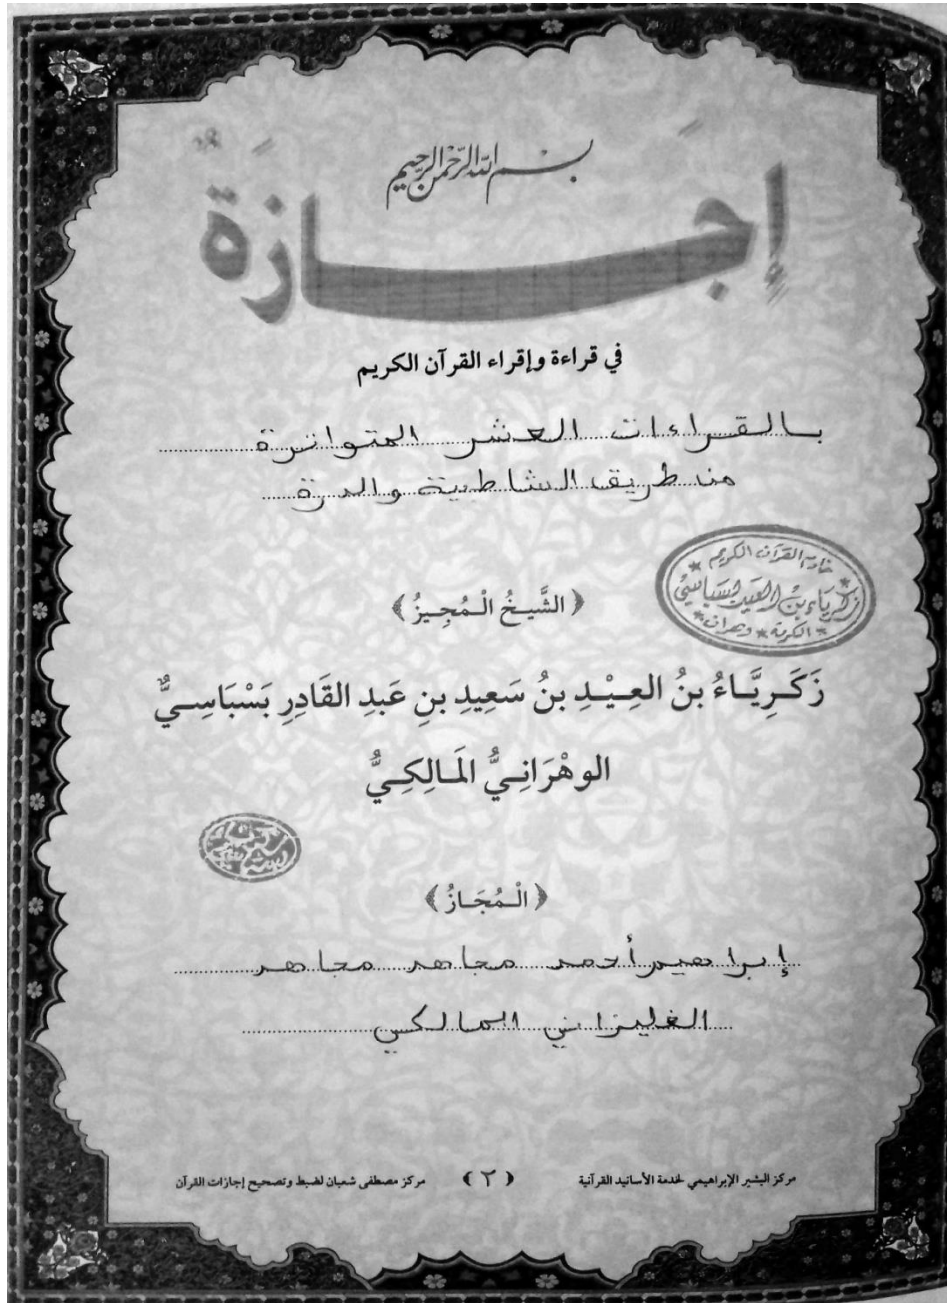 بسم الله الرحمن الرحيم
إِجَازَةٌ
في قراءة وإقراء القرآن الكريم
بالقراءات العشر المتواترة
من طريق الشاطبية والدرة
خادم القرآن الكريم
زكرياء بن العيد بسباسي
الكرمة وهران
﴿الشَّيخُ الْـمُجِيزُ﴾
زَكَـرِيَّـاءُ بنُ العِـيْـدِ بنُ سَعِيدِ بنِ عَبدِ القَادِرِ بَسْبَاسِـيٌّ
الوهْرَانِـيُّ المَالِكِـيُّ
﴿الْـمُجَـازُ﴾
إبراهيم أحمد مجاهد مجاهد
الغليزاني المالكي
مركز البشير الإبراهيمي لخدمة الأسانيد القرآنية ﴿٢﴾ مركز مصطفى شعبان لضبط وتصحيح إجازات القرآن